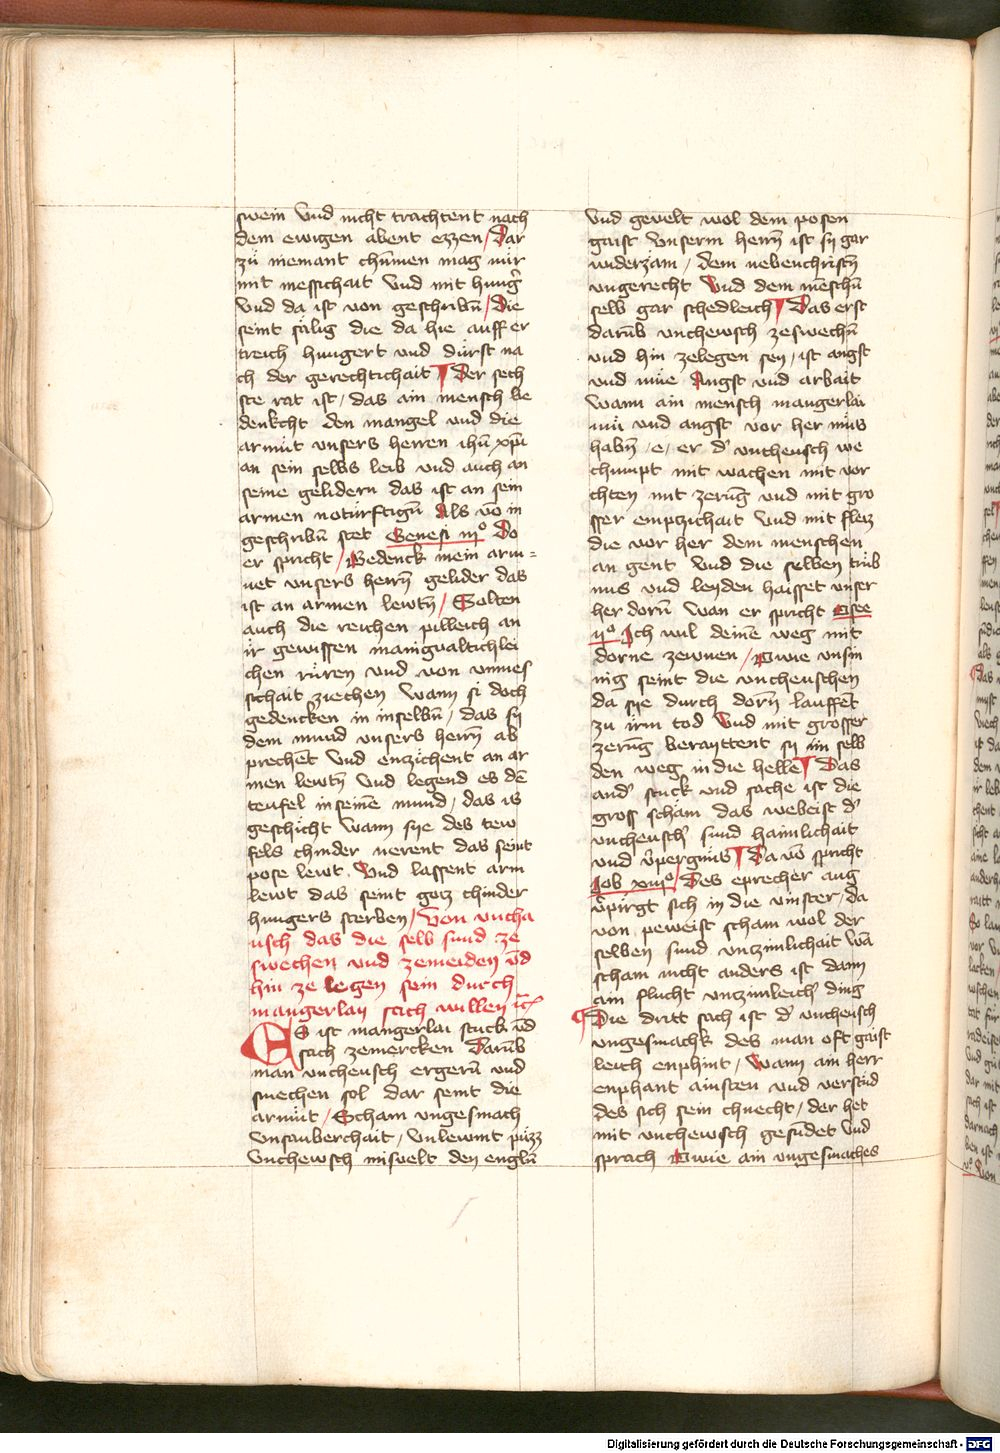 swein Vnd nicht trachtent nach
dem ewigen abent ezzen / Dar
zů niemant chumen mag nur
mit messichait Vnd mit hung̃
Vnd da ist von geschribñ / Die
seint sälig die da hie auff er
treich hungert vnd dürst na
ch der gerechtichait ¶ Der sech
ste rat ist / das ain mensch be
denkcht den mangel vnd die
armüt vnsers herren ihũ xpũ
an sein selbs leib vnd auch an
seine gelidern das ist an sein
armen notürftigñ Als võ in
geschribñ stet Genesi iijº Do
er spricht / Gedenck mein arm=
uet vnsers herrñ gelider das
ist an armen lewtñ / Solten
auch die reichen pilleich an
ir gewissen manigualtichlei
chen rüren vnd von vnmes
sichait ziechen Wann si doch
gedencken in inselbñ / das sy
dem mund vnsers herrñ ab
prechẽt Vnd enzichent an ar
men lewtñ Vnd legend es dẽ
teufel in seinẽ mund / das is
geschicht Wann sye des tew
fels chinder nerent das seint
pose lewt. Vnd lassent arm
lewt das seint gotz chinder
hungers sterben / Von vncha
usch das die selb sund ze
swechen vnd zemeiden vñd
hin ze legen sein durch
mangerlay sach willen
ES ist mangerlai stuck vñd
sach zemercken Darũb
man vncheusch ergerñ vnd
smechen sol dar seint die
armüt / Scham vngesmach
Vnsauberchait / Vnlewmt
Vnchewsch misvelt den englñ
Vnd gevelt wol dem posen
gaist Vnserm herrñ ist sy gar
widerzäm / dem nebenchristñ
vngerecht Vnd dem mẽschñ
selb gar schedleich ¶ Das erst
darũb vnchewsch zeswechñ
vnd hin zelegen sey / ist angst
vnd müe Angst vnd arbait
Wann ain mensch mangerlai
müi vnd angst vor her müs
habñ / e / er d̾ vncheusch we
chumpt mit wachen mit vor
chten mit zerũg vnd mit gro
sser empzichait Vnd mit fleiz
die vor her dem menschen
an gent Vnd die selben trüb
nus vnd leyden haisset vnser
her dorñ Wan er spricht Osee
ijº Ich wil deinẽ weg mit
dorne zewnen / O wie vnsin
nig seint die vncheuschen
da sye durch dorñ lauffẽt
zu irm tod Vnd mit grosser
zerũg beraittent sy im selb
den weg in die helle ¶ Das
and̾ stuck vnd sache ist die
gross schäm das webeist d̾
vncheusch̾ sund haimlichait
vnd v̾pergnüs ¶ Da võ spricht
Job / Des eprecher aug
v̾pirgt sich in die vinster / da
von peweist scham wol der
selben sund vntzimlichait wã
scham nicht anders ist dann
ain flucht vntzimleich̾ ding
¶ Die dritt sach ist d̾ vncheusch
vngesmachk des man oft gaist
leich enphint / Wann ain herr
enphant ainsten vnd verstũd
des sich sein chnecht / der het
mit vnchewsch gesũdet Vnd
sprach O wie ain vngesmaches
Digitalisierung gefördert durch die Deutsche Forschungsgemeinschaft - DFG